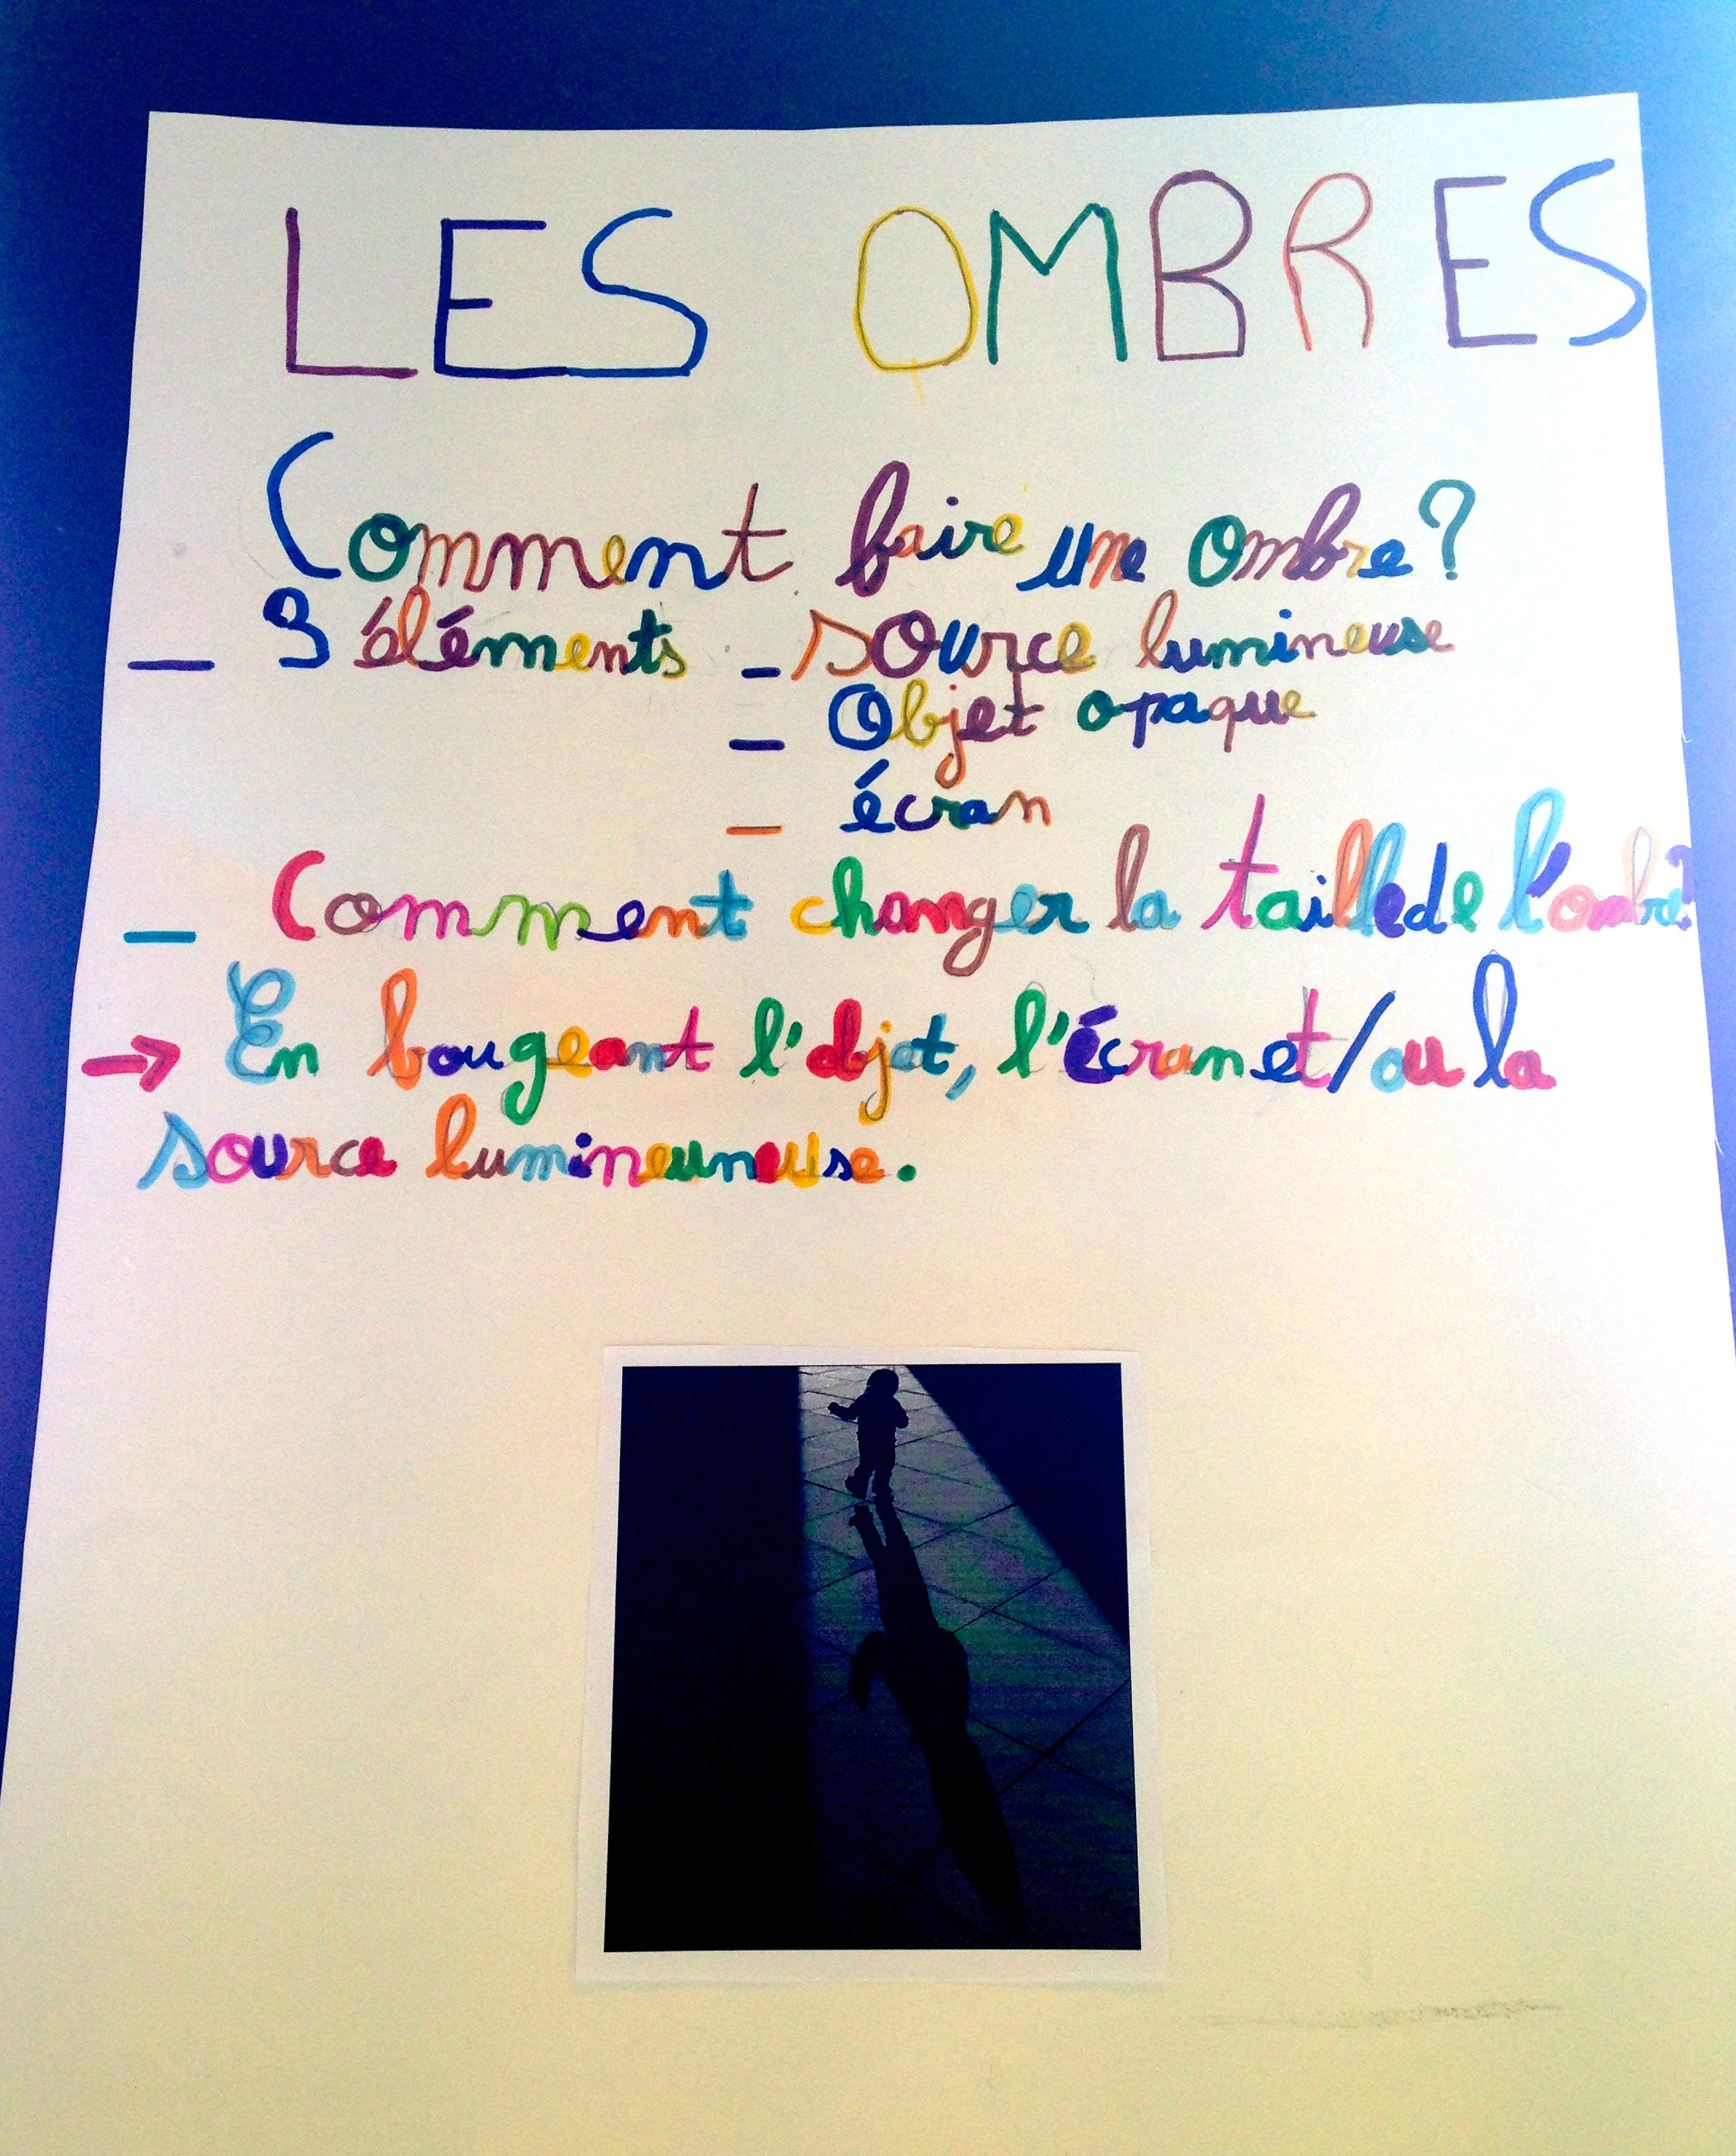 LES OMBRES
Comment faire une ombre?
- 3 éléments - source lumineuse
- Objet opaque
- écran
- Comment changer la taille de l'ombre?
→ En bougeant l'objet, l'écran et/ou la
source lumineuneuse.